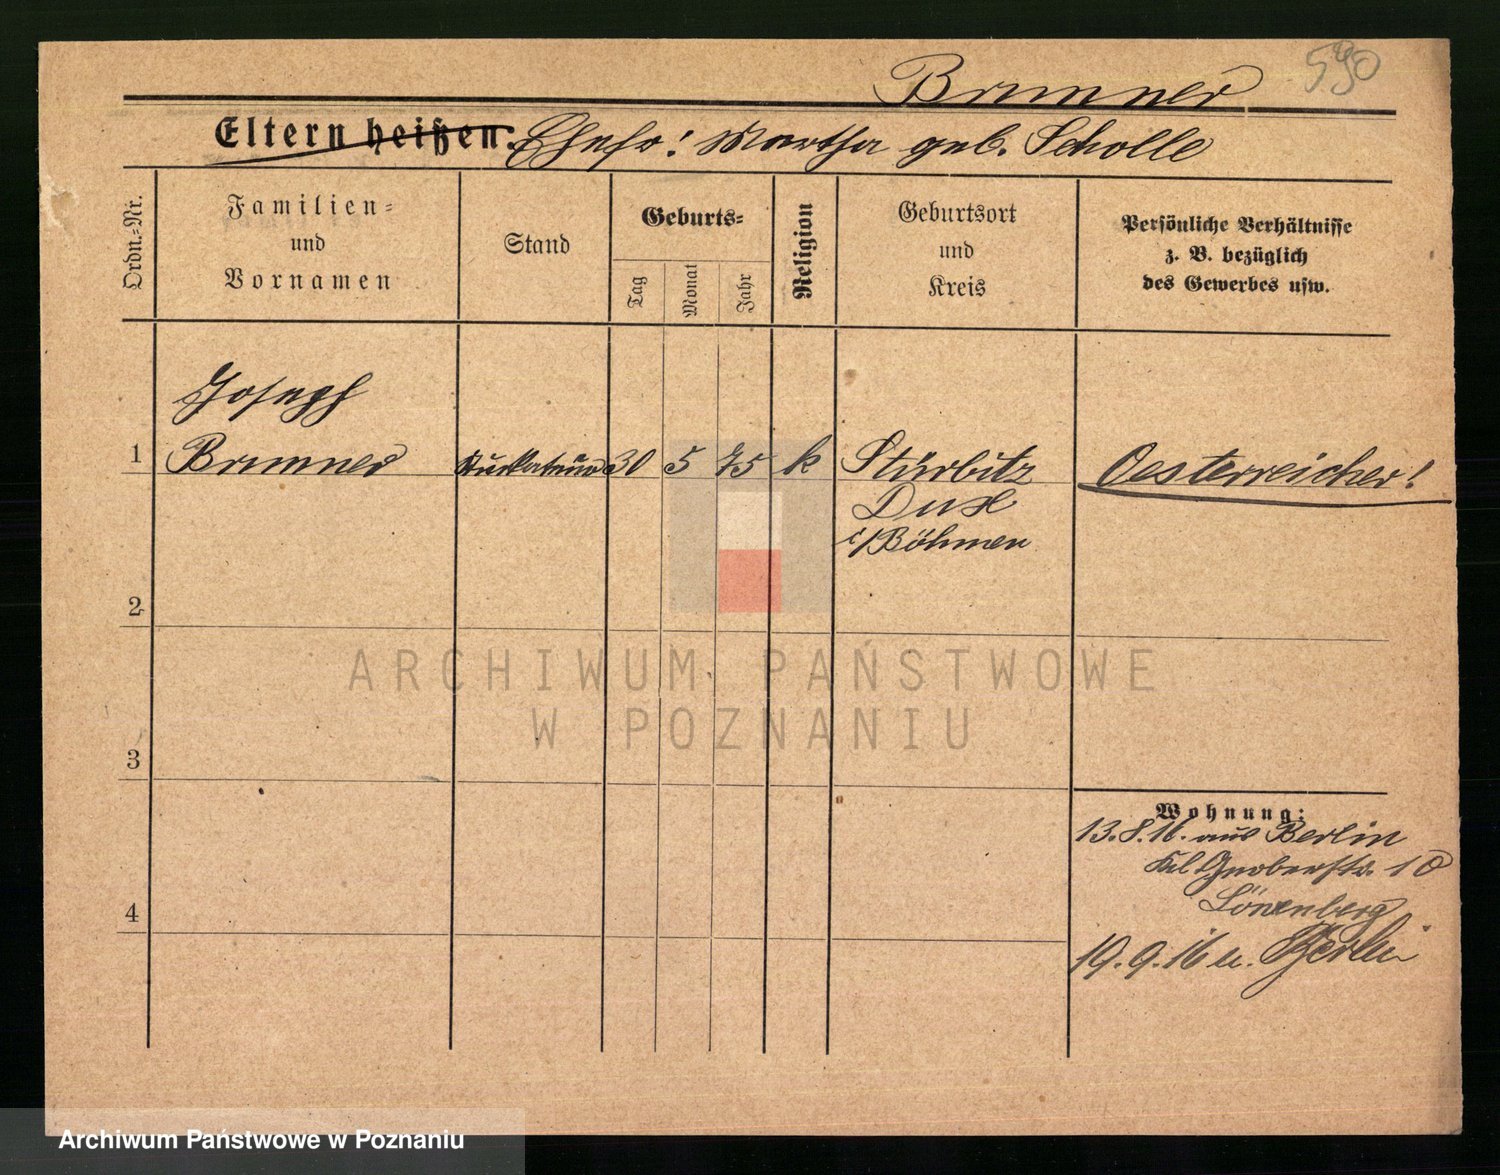 590
Brunner
Eltern heißen: Ehefr! Martha geb. Scholle
Ordn.-Nr.
Familien-
und
Vornamen
Stand
Geburts-
Tag
Monat
Jahr
Religion
Geburtsort
und
Kreis
Persönliche Verhältnisse
z. B. bezüglich
des Gewerbes usw.
Joseph
1 Brunner 30 5 75 k Stürbitz Oesterreicher!
Dux
i/Böhmen
2
3
4
Wohnung:
13.8.16. aus Berlin
Kl. 10
19.9.16 n. Berlin
ARCHIWUM PAŃSTWOWE
W POZNANIU
Archiwum Państwowe w Poznaniu